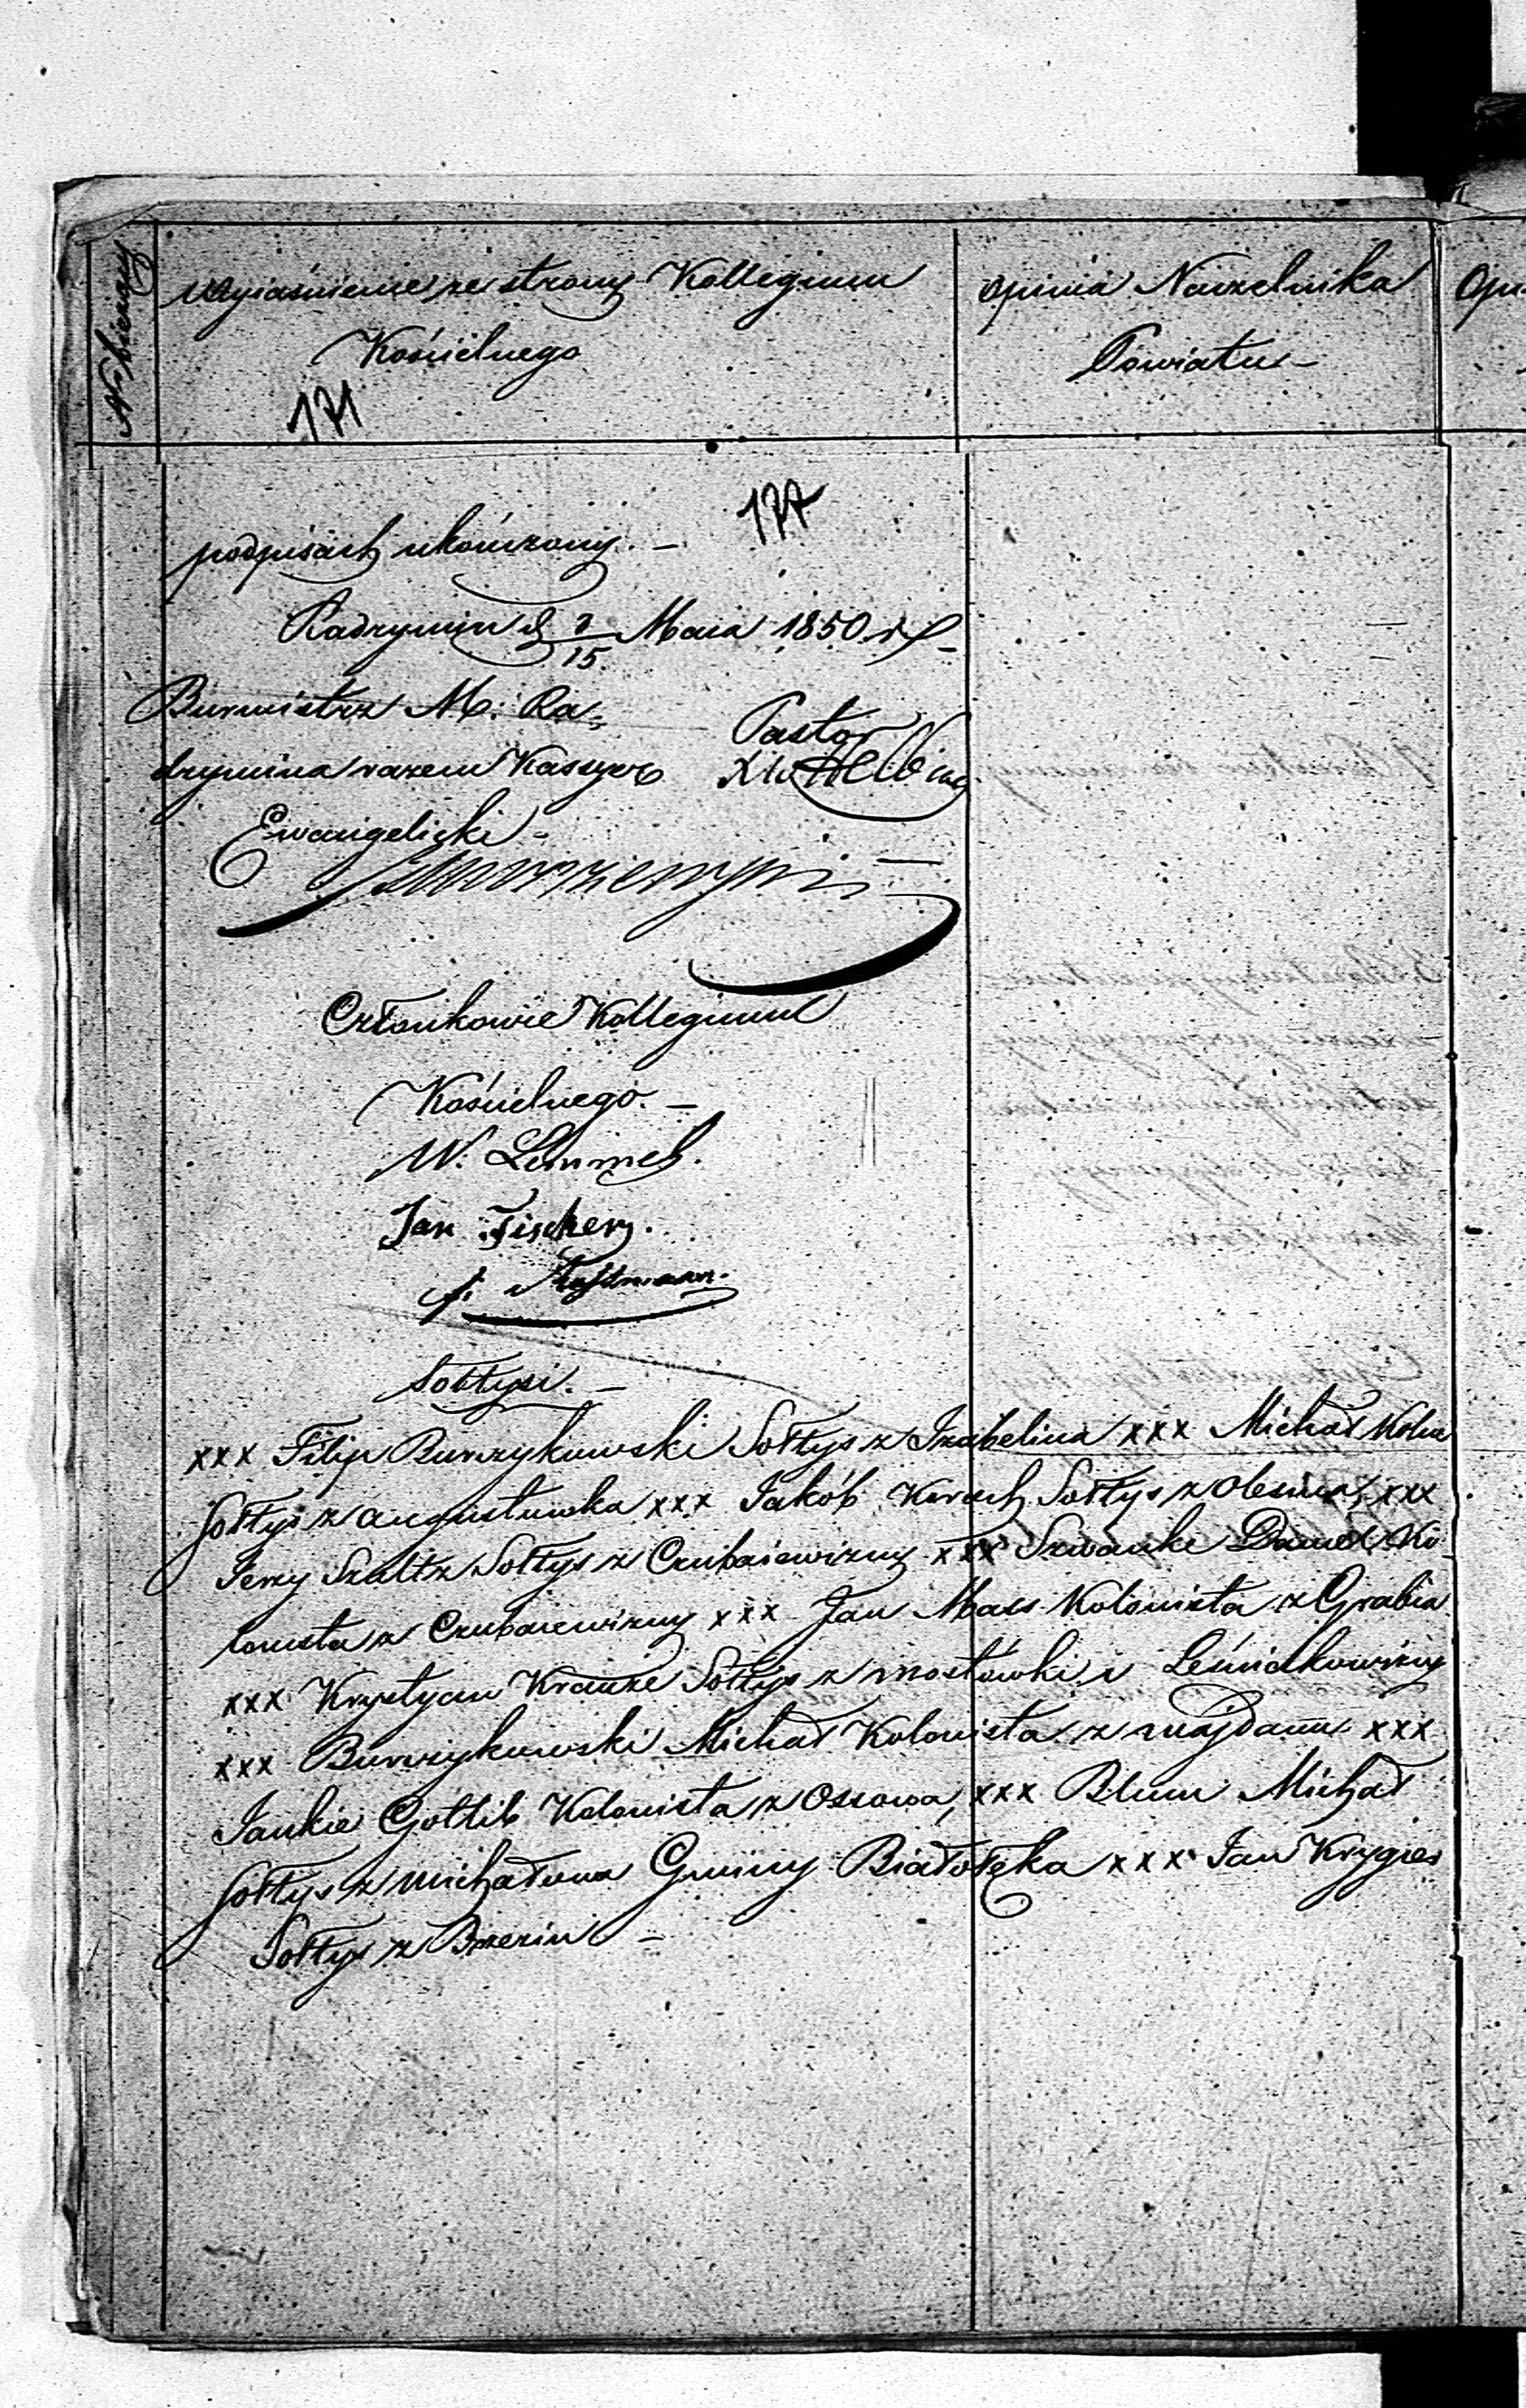 Nr bieżący
Wyiaśnienie ze strony Kollegium
Kościelnego
opinia Naczelnika
Powiatu
Opi
171
177
podpisach ukończony. —
Radzymin d 3/15 Maia 1850 r
Burmistrz M: Ra=
dzymina razem Kassyer
Ewangelicki
Pastor
Członkowie Kollegium
Kościelnego. —
W. Lemmel.
Jan Fischer.
Sołtysi. —
xxx Filip Burzykowski Sołtys z Izabelina xxx Michał
Sołtys z Augustuwka xxx Jakób Sołtys z xxx
Jerzy Szultz Sołtys z Czubaiewizny xxx Szwanke Daniel Ko
lonista z Czubaiewizny xxx Jan Mass Kolonista z Grabia
xxx Krystyan Krauze Sołtys z mostówki i Leśniakowizny
xxx Burzykowski Michał Kolonista z majdanu xxx
Jankie Gotlib Kolonista z Ossowa, xxx Blum Michał
Sołtys z michałowa Gminy Białołęka xxx Jan Krygier
Sołtys z